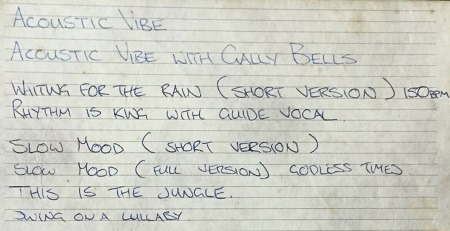 ACOUSTIC VIBE
ACOUSTIC VIBE WITH GALLY BELLS
WAITING FOR THE RAIN (SHORT VERSION) 150BPM
RHYTHM IS KING WITH GUIDE VOCAL
SLOW MOOD (SHORT VERSION)
SLOW MOOD (FULL VERSION) GODLESS TIMES
THIS IS THE JUNGLE.
SWING ON A LULLABY